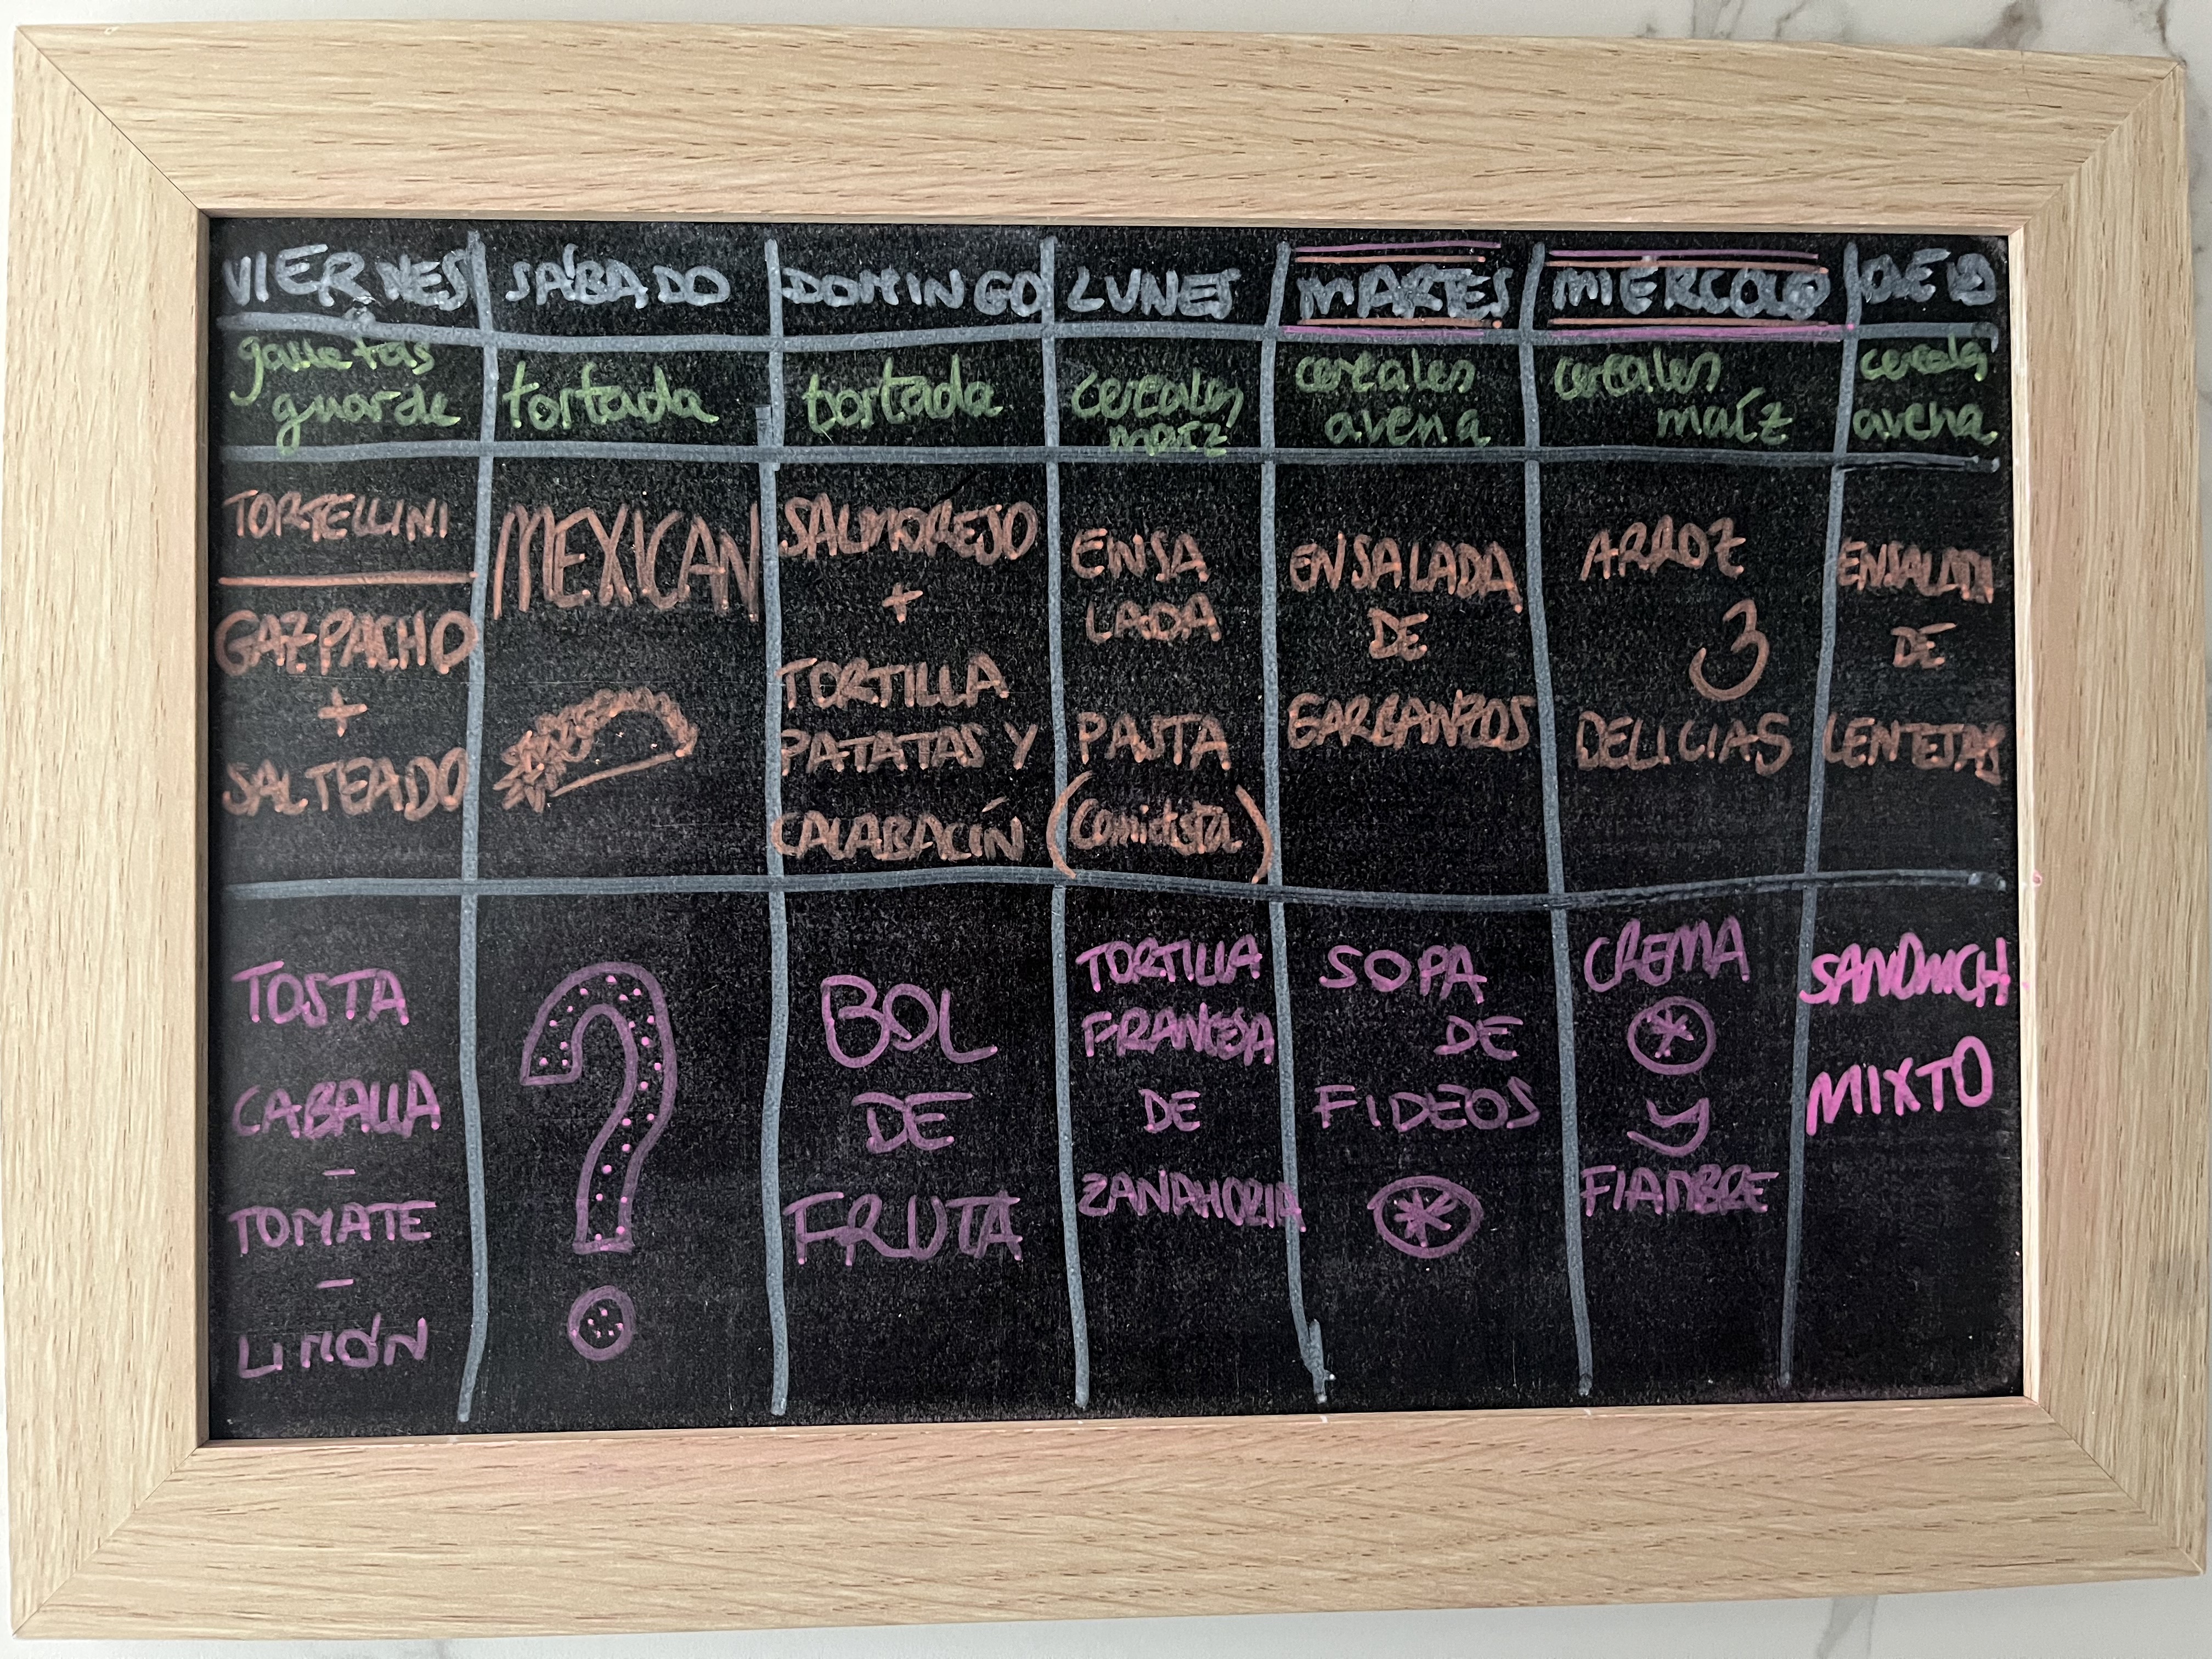 VIERNES SÁBADO DOMINGO LUNES MARTES MIÉRCOLES JUEVES
galletas
guarde
tortada
tortada
cereales
maíz
cereales
avena
cereales
maíz
cereales
avena
TORTELLINI
GAZPACHO
+
SALTEADO
MEXICAN
SALMOREJO
+
TORTILLA
PATATAS Y
CALABACÍN
ENSA
LADA
PASTA
(Comidista)
ENSALADA
DE
GARBANZOS
ARROZ
3
DELICIAS
ENSALADA
DE
LENTEJAS
TOSTA
CABALLA
-
TOMATE
-
LIMÓN
?
BOL
DE
FRUTA
TORTILLA
FRANCESA
DE
ZANAHORIA
SOPA
DE
FIDEOS
*
CREMA
*
Y
FIAMBRE
SANDWICH
MIXTO